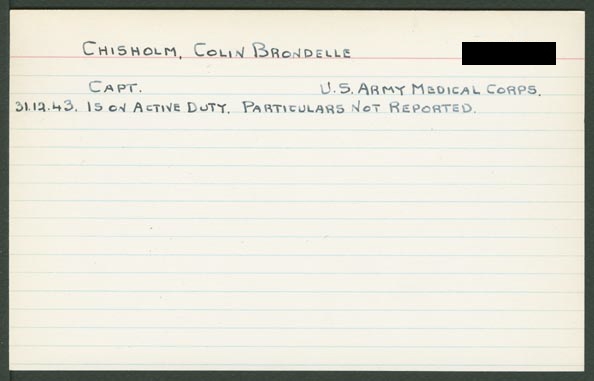 CHISHOLM, COLIN BRONDELLE
CAPT. U.S. ARMY MEDICAL CORPS.
31.12.43. IS ON ACTIVE DUTY. PARTICULARS NOT REPORTED.